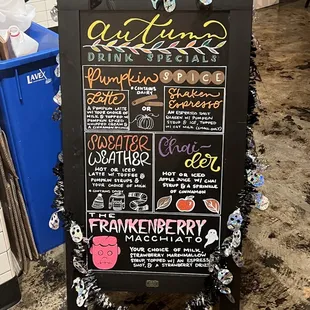 LAVEX
autumn
DRINK SPECIALS
Pumpkin SPICE
* CONTAINS DAIRY
Latte
A PUMPKIN LATTE
WITH YOUR CHOICE
OF MILK
AND TOPPED WITH
PUMPKIN SPICED
WHIPPED CREAM &
A CINNAMON
OR
Shaken
Espresso
AN ESPRESSO ONLY
SHAKEN W/ PUMPKIN
SYRUP & ICE, TOPPED
W/ OAT MILK
SWEATER
WEATHER
HOT OR ICED
LATTE W/ TOFFEE &
PUMPKIN SYRUPS &
YOUR CHOICE OF MILK
* CONTAINS DAIRY
Chai-
der
HOT OR ICED
APPLE JUICE W/ CHAI
SYRUP & A SPRINKLE
OF CINNAMON
THE
FRANKENBERRY
MACCHIATO
YOUR CHOICE OF MILK,
STRAWBERRY MARSHMALLOW
SYRUP, TOPPED W/ AN ESPRESSO
SHOT, & A STRAWBERRY